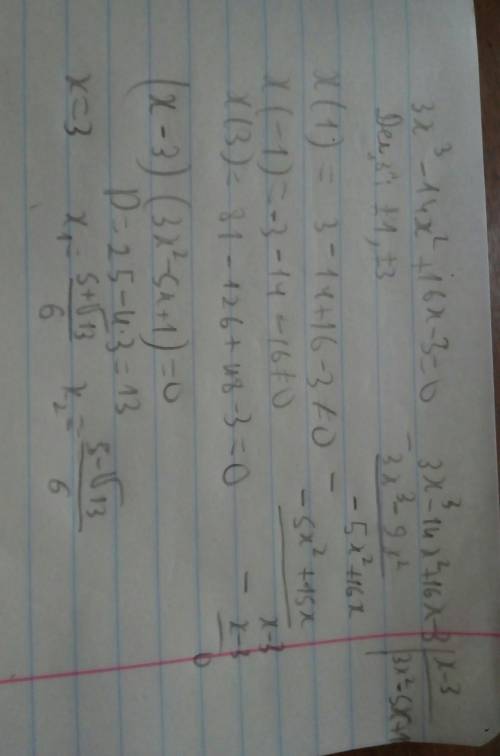 3x³ - 14x² + 16x - 3 = 0
±1, ±3
x(1) = 3 - 14 + 16 - 3 ≠ 0
x(-1) = -3 - 14 - 16 ≠ 0
x(3) = 81 - 126 + 48 - 3 = 0
(x - 3)(3x² - 5x + 1) = 0
D = 25 - 4·3 = 13
x = 3 x₁ = (5 + √13)/6 x₂ = (5 - √13)/6
3x³ - 14x² + 16x - 3 | x - 3
- 3x³ - 9x² | 3x² - 5x + 1
-5x² + 16x
- -5x² + 15x
x - 3
- x - 3
0